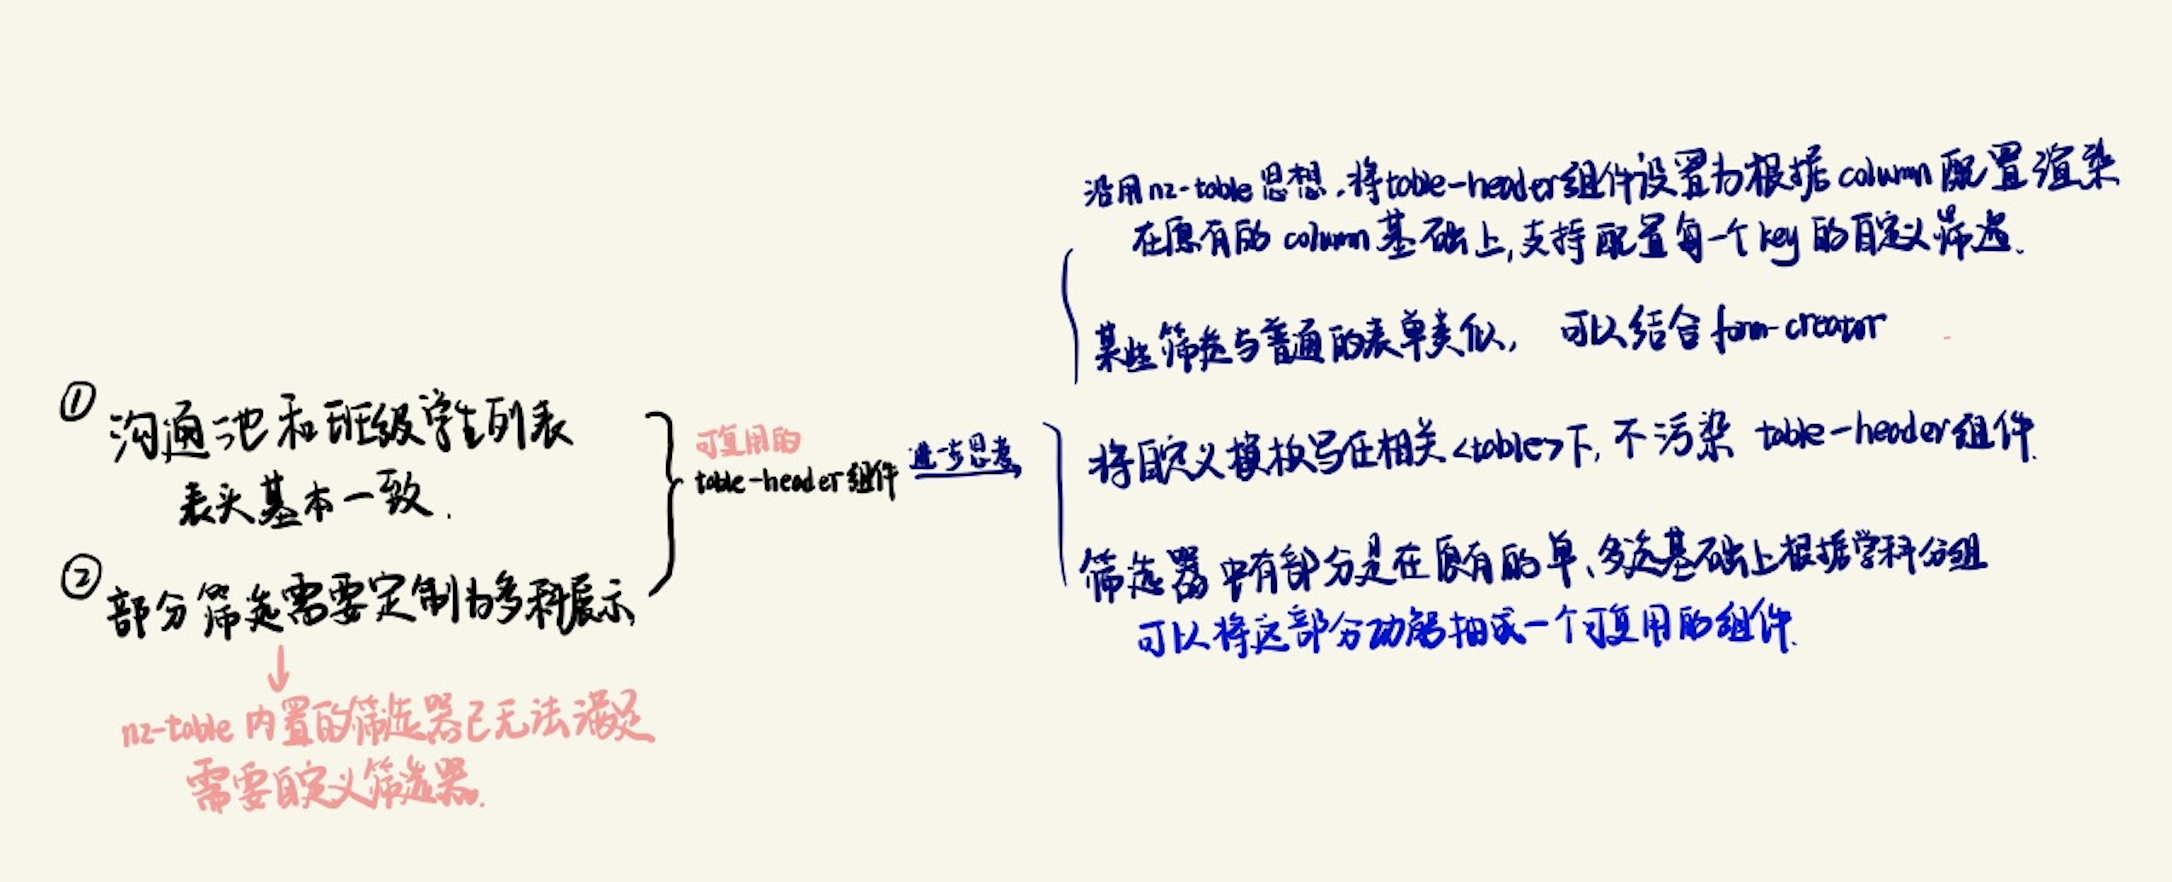 ① 沟通池和班级学生列表
表头基本一致.
② 部分筛选需要定制为多科展示
nz-table 内置的筛选器已无法满足
需要自定义筛选器.
可复用的
table-header组件
进一步思考
沿用nz-table思想,将table-header组件设置为根据column配置渲染
在原有的column基础上,支持配置每一个key的自定义筛选.
某些筛选与普通的表单类似, 可以结合form-creator
将自定义模板写在相关<table>下,不污染 table-header组件.
筛选器中有部分是在原有的单、多选基础上根据学科分组
可以将这部分功能抽成一个可复用的组件.